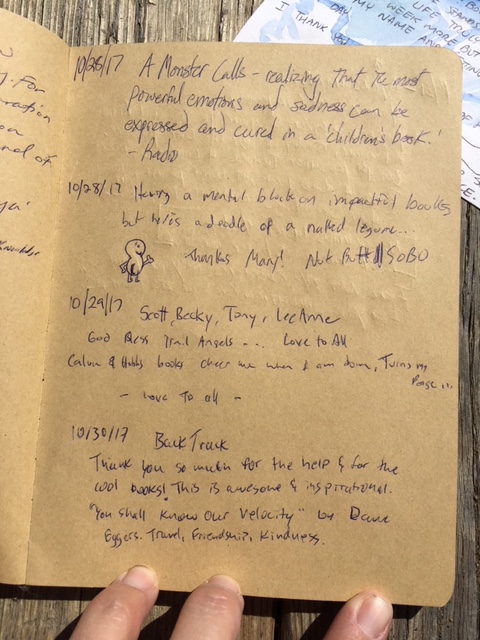 10/28/17 A Monster Calls - realizing that the most
powerful emotions and sadness can be
expressed and cured in a 'children's book.'
- Radio
10/28/17 Having a mental block on impactful books
but here's a doodle of a naked legume...
Thanks Mary! Nut Butt SOBO
10/29/17 Scott, Becky, Tony, LeeAnne
God Bless Trail Angels --- Love to All
Calvin & Hobbs books cheer me when I am down, Turns my
Page ...
- Love To all -
10/30/17 BackTrack
Thank you so much for the help & for the
cool books! This is awesome & inspirational.
"You shall know our Velocity" by Dave
Eggers. Travel, Friendship, Kindness.
LIFE
WEEK MORE BUT
MY NAME
I THANK YOU